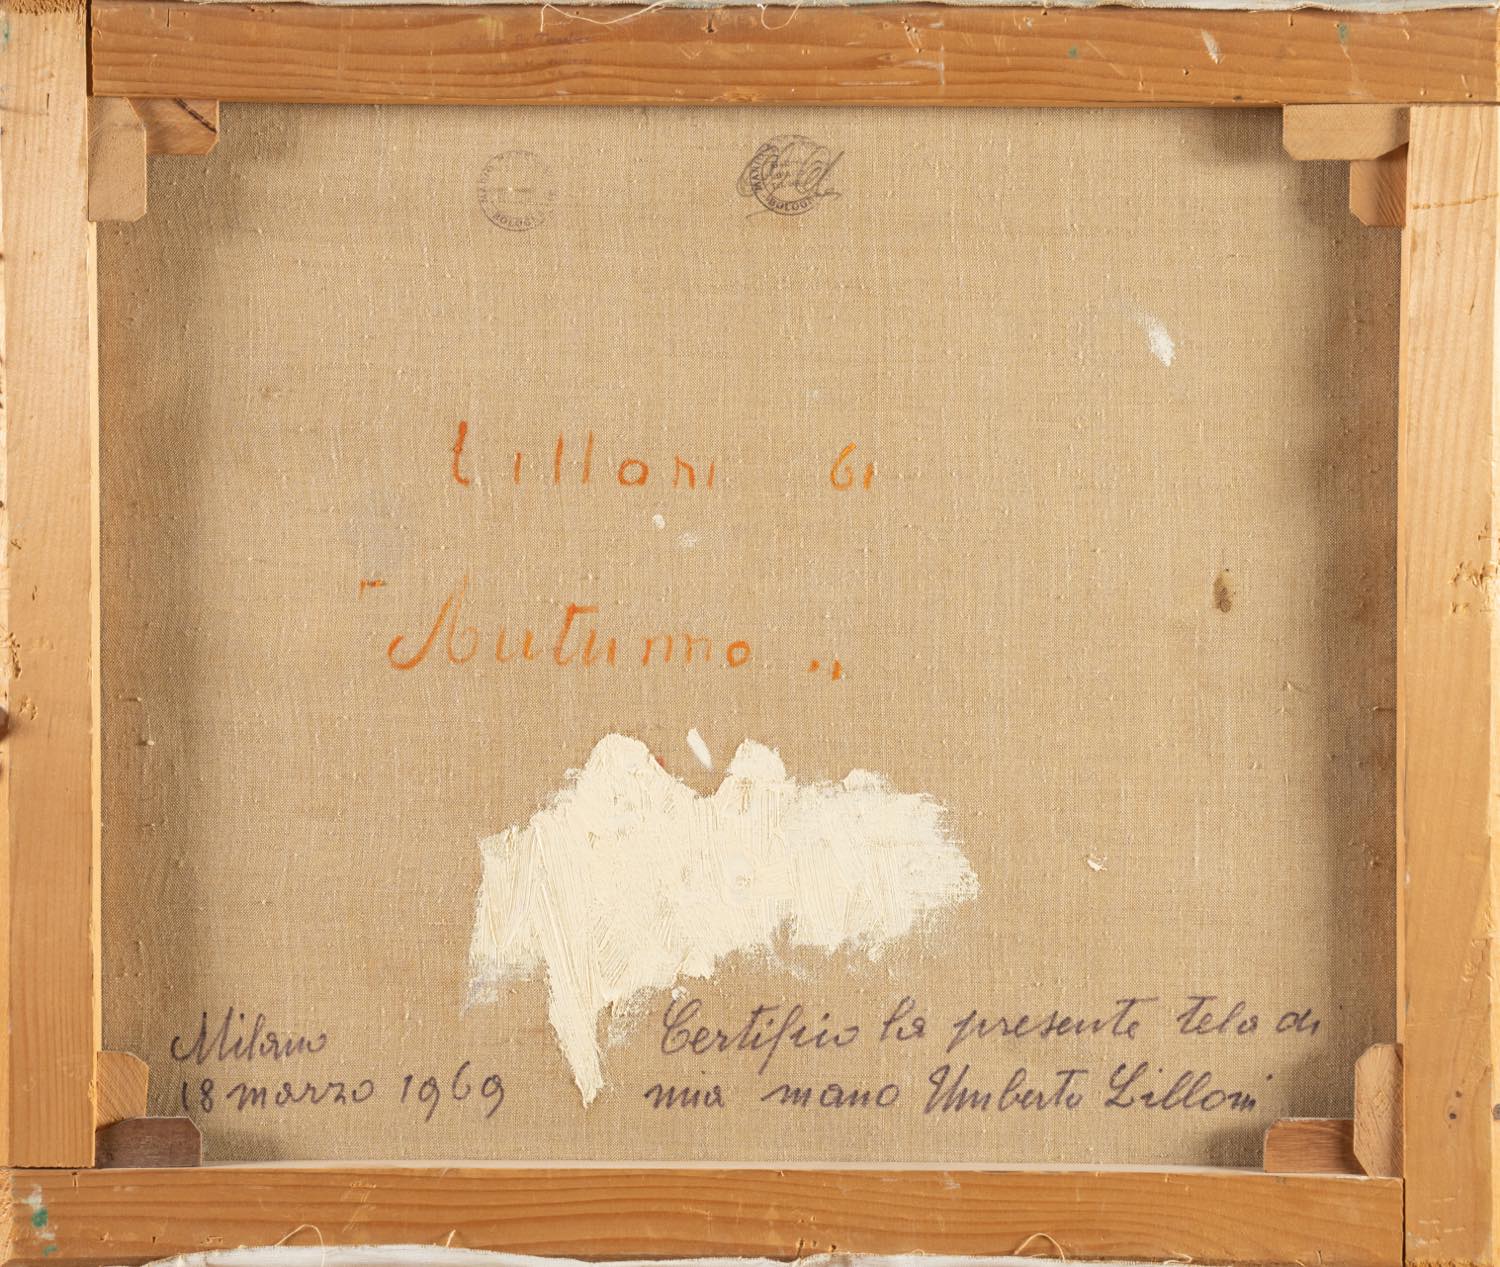 BOLOGNA
Lilloni 61
"Autunno"
Milano
18 marzo 1969
Certifico la presente tela di
mia mano Umberto Lilloni